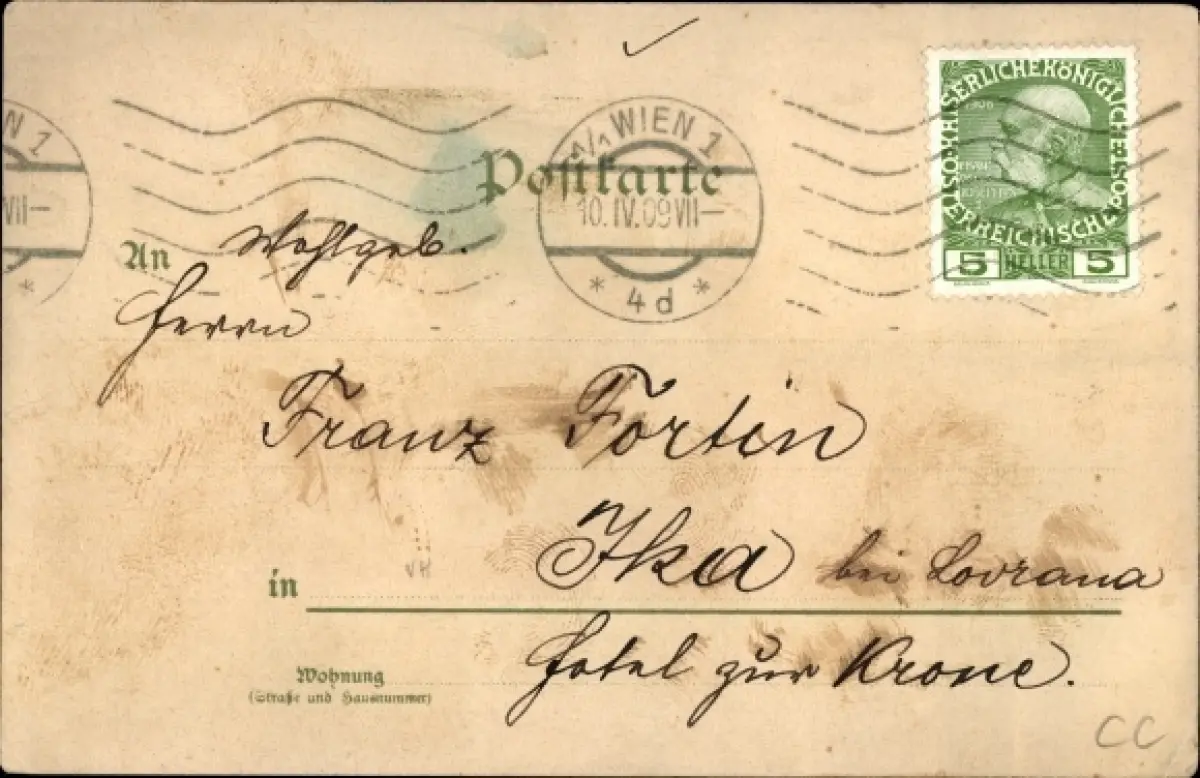 KAISERLICHE KÖNIGLICHE ÖSTERREICHISCHE POST
5 HELLER 5
1/1 WIEN 1
10.IV.09 VII–
* 4d *
N 1
VII–
*
Postkarte
An Wohlgeb.
Herrn
Franz Fortin
in Ika bei Lovrana
Hotel zur Krone.
Wohnung
(Straße und Hausnummer)
VH
CC